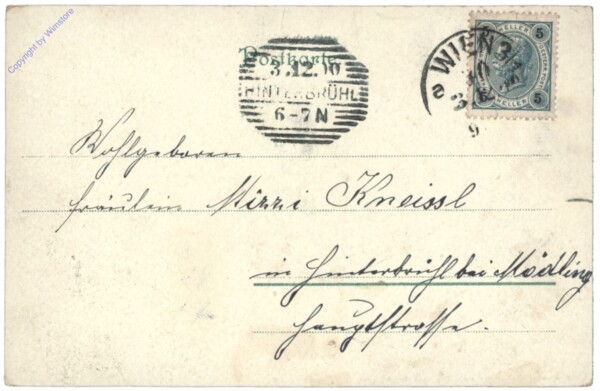 Copyright by Winstore
Postkarte
WIEN
3.12.00
HINTERBRÜHL
6-7N
5
5
HELLER
5
HELLER
5
9
Wohlgeboren
Fräulein Mizzi Kneissl
in Hinterbrühl bei Mödling
Hauptstrasse.